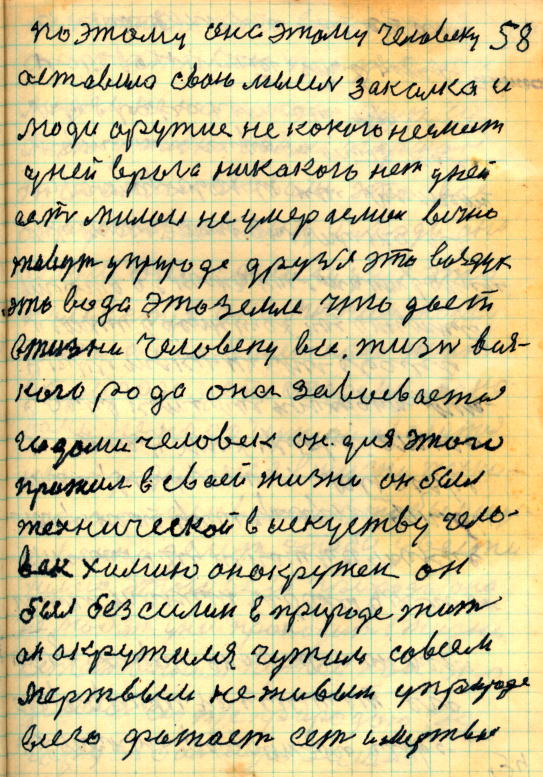 поэтому она этому человеку 58
оставила свою мысля закалка и
люди оружие не кокого неимит
уней врага никакого нет уней
есть милои не умераемои вечно
живут уприроде друзя это воздук
это вода это земле что дает
вжизни человеку все. жизн вся-
кого рода она завоевается
годами человек он для этого
прожил в своей жизне он был
технической в искуству чело-
век химию онокружен он
был безсилин в природе жит
он окружился чужим совсем
мертвым неживым уприроде
всего фатает сет имертвы